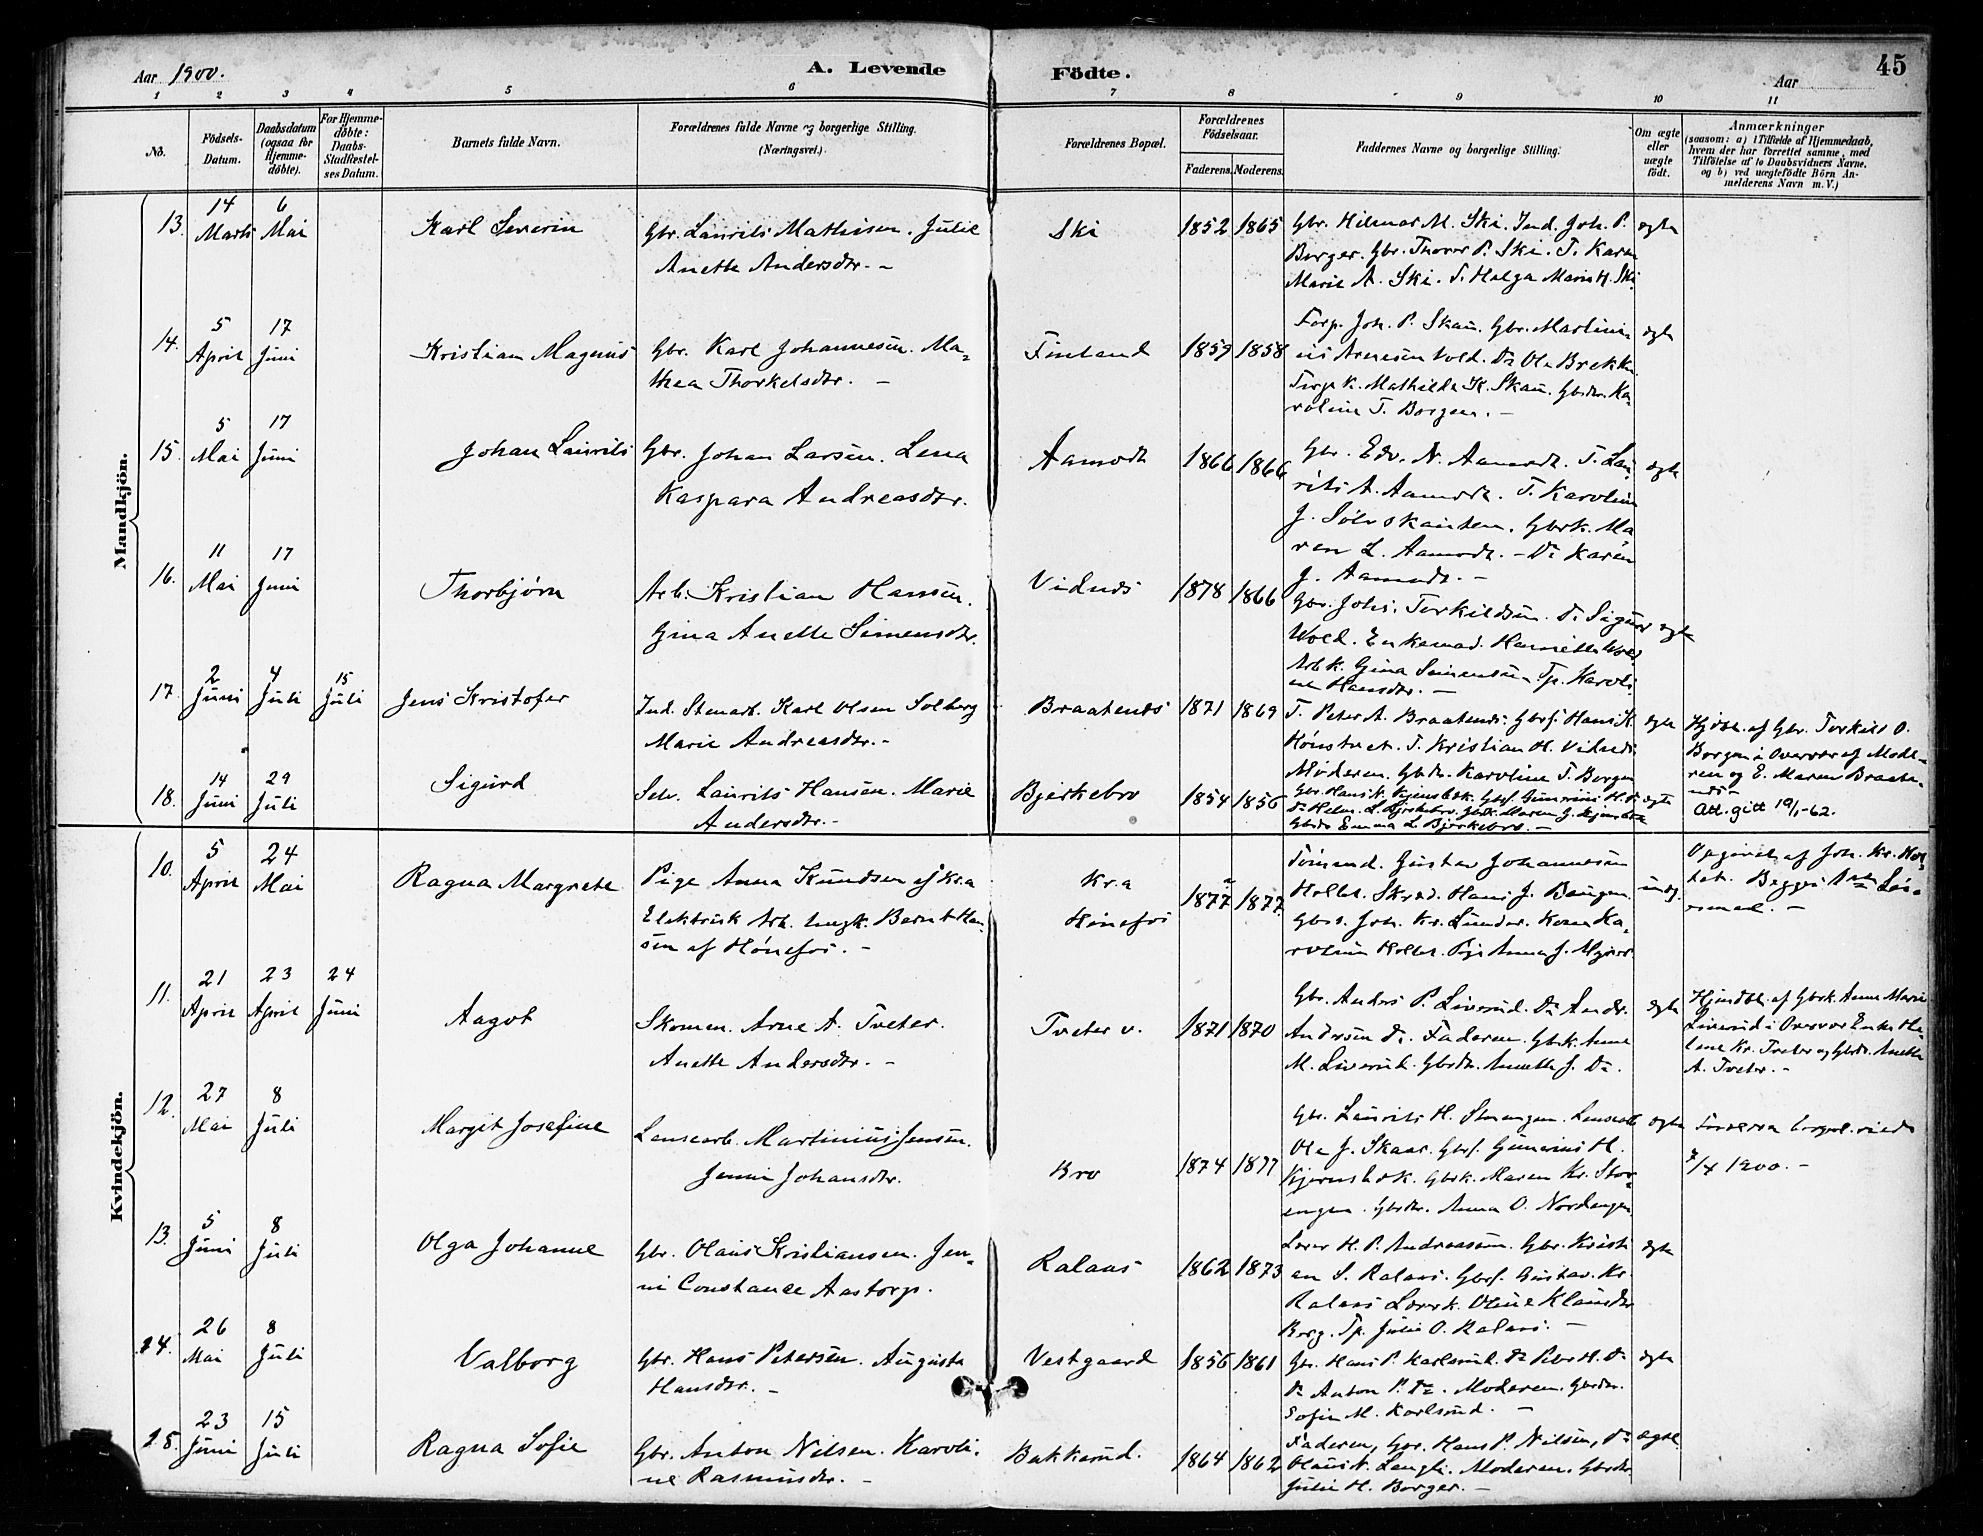 Aar 1900.
A. Levende
Födte.
Aar
45
1 2 3 4 5 6 7 8 9 10 11
No.
Födsels-Datum.
Daabsdatum (ogsaa for Hjemme-döbte).
For Hjemme-döbte: Daabs-Stadfestel-ses Datum.
Barnets fulde Navn.
Forældrenes fulde Navne og borgerlige Stilling.
(Næringsvei.)
Forældrenes Bopæl.
Forældrenes Födselsaar.
Faderens. Moderens.
Faddernes Navne og borgerlige Stilling.
Om ægte eller uægte født.
Anmærkninger
(saasom: a) i Tilfælde af Hjemmedaab,
hvem der har forrettet samme, med
Tilföielse af to Daabsvidners Navne.
og b) ved uægtefödte Börn An-
melderens Navn m. V.)
Mandkjön.
13. 14 Marts 6 Mai Karl Severin Gbr. Laurits Mathisen. Julie
Anette Andersdtr. -
Ski 1852 1865 Gbr. Hilmar M. Ski. Ind. Joh. P. ægte
Borger. Gbr. Thorer P. Ski. T. Karen
Marie A. Ski. T. Helga Marie H. Ski
14. 5 April 17 Juni Kristian Magnus Gbr. Karl Johannesen. Ma-
thea Thorkelsdtr. -
Finland 1859 1858 Forp. Joh. P. Skau. Gbr. Martini- ægte
us Arnesen Vold. Do Ole Brekke.
Forp. k. Mathilde K. Skau. Gbrdtr. Ka-
roline T. Borgen. -
15. 5 Mai 17 Juni Johan Laurits Gbr. Johan Larsen. Lena
Kaspara Andreasdtr.
Aamodt 1866 1866 Gbr. Edv. N. Aamodt. T. Lau- ægte
rits A. Aamodt. T. Karoline
J. Sölvskauten. Gbrk. Ma
ren L. Aamodt. - Do Karen
J. Aamodt. -
16. 11 Mai 17 Juni Thorbjørn Arb. Kristian Hansen.
Gina Anette Simensdtr.
Vidnes 1878 1866 Gbr. Johs. Torkildsen. Do Sigurd ægte
Wold. Enkemad. Wold
Arb.k. Gina Simensen Tp. Karoli
ne Hansdtr. -
17. 2 Juni 4 Juli 15 Juli Jens Kristofer Ind. Stenarb. Karl Olsen Solberg
Marie Andreasdtr. -
Braatenes 1871 1869 T. Peter A. Braatenes. Gbrs. Hans K. ægte
T. Kristian H. Vidnes
Moderen. Gbrdtr. Karoline T. Borgen
Hjdbt. af Gbr. Torkild O.
Borgen i Overvær af Mode-
ren og E. Maren Braate-
nes
Att. gitt 19/1-62.
18. 14 Juni 29 Juli Sigurd Selv. Laurits Hansen. Marie
Andersdtr. -
Bjerkebro 1854 1856 Gbr. Hans K. Kjernsbæk. Gbrs. Gunerius H. Do ægte
Do Helm. L. Bjerkebro. Gbrk. Maren G. Kjernsbæk
Gbrdtr. Emma L. Bjerkebro. -
Kvindekjön.
10. 5 April 24 Mai Ragna Margrete Pige Anna Knudsen af Kra
Elektrisk Arb. Ungk. Bernt Han-
sen af Hönefos. -
Kra
Hönefos
1877 1877 Tömmd. Gustav Johannesen uæg.
Holter. Skræd. Hans J. Baugen
Gbrs. Joh. Kr. Lunder. Kone Ka-
roline Holter. Pige Anna J.
Opgivet af Joh. Kr. Hol-
ter. Begges 1ste Leier-
smaal. -
11. 21 April 23 April 24 Juni Aagot Skomm. Arne A. Tveter.
Anette Andersdtr. -
Tveter v. 1871 1870 Gbr. Anders P. Liverud. Do Andr. ægte
Andersen Do. Faderen. Gbrk. Anne
M. Liverud. Gbrdtr. Anette J. Do.
Hjemdbt. af Gbrk. Anne Marie
Liverud i Overvær Enke He-
lene Kr. Tveter og Gbrdtr. Anette
A. Tveter. -
12. 27 Mai 8 Juli Margit Josefine Lensearb. Martinius Jensen.
Jenni Johansdtr.
Bro 1874 1877 Gbr. Laurits H. Storengen. Lensearb ægte
Ole J. Skaar. Gbrs. Gunerius H.
Kjernsbæk. Gbrk. Maren Kr. Stor-
engen. Gbrdtr. Anna O. Nordengen
1900. -
13. 5 Juni 8 Juli Olga Johanne Gbr. Olaus Kristiansen. Jen-
ni Constance Aastorp.
Ralaas 1862 1873 Lærer H. P. Andreassen. Gbr. Kristi ægte
an S. Ralaas. Gbrs. Gustav. Kr.
Ralaas Lærerk. Oline Klausdtr
Borg. Tp. Julie O. Ralaas. -
14. 26 Mai 8 Juli Valborg Gbr. Hans Petersen. Augusta
Hansdtr. -
Vestgaard 1856 1861 Gbr. Hans P. Karlsrud. Do Peter H. Do ægte
Do Anton P. Do. Moderen. Gbrdtr.
Sofie M. Karlsrud. -
15. 23 Juni 15 Juli Ragna Sofie Gbr. Anton Nilsen. Karoli-
ne Rasmusdtr. -
Bakkerud. 1864 1862 Faderen, Gbr. Hans P. Nilsen, Do ægte
Olaus N. Langli. Moderen. Gbrdtr.
Julie H. Borger. -